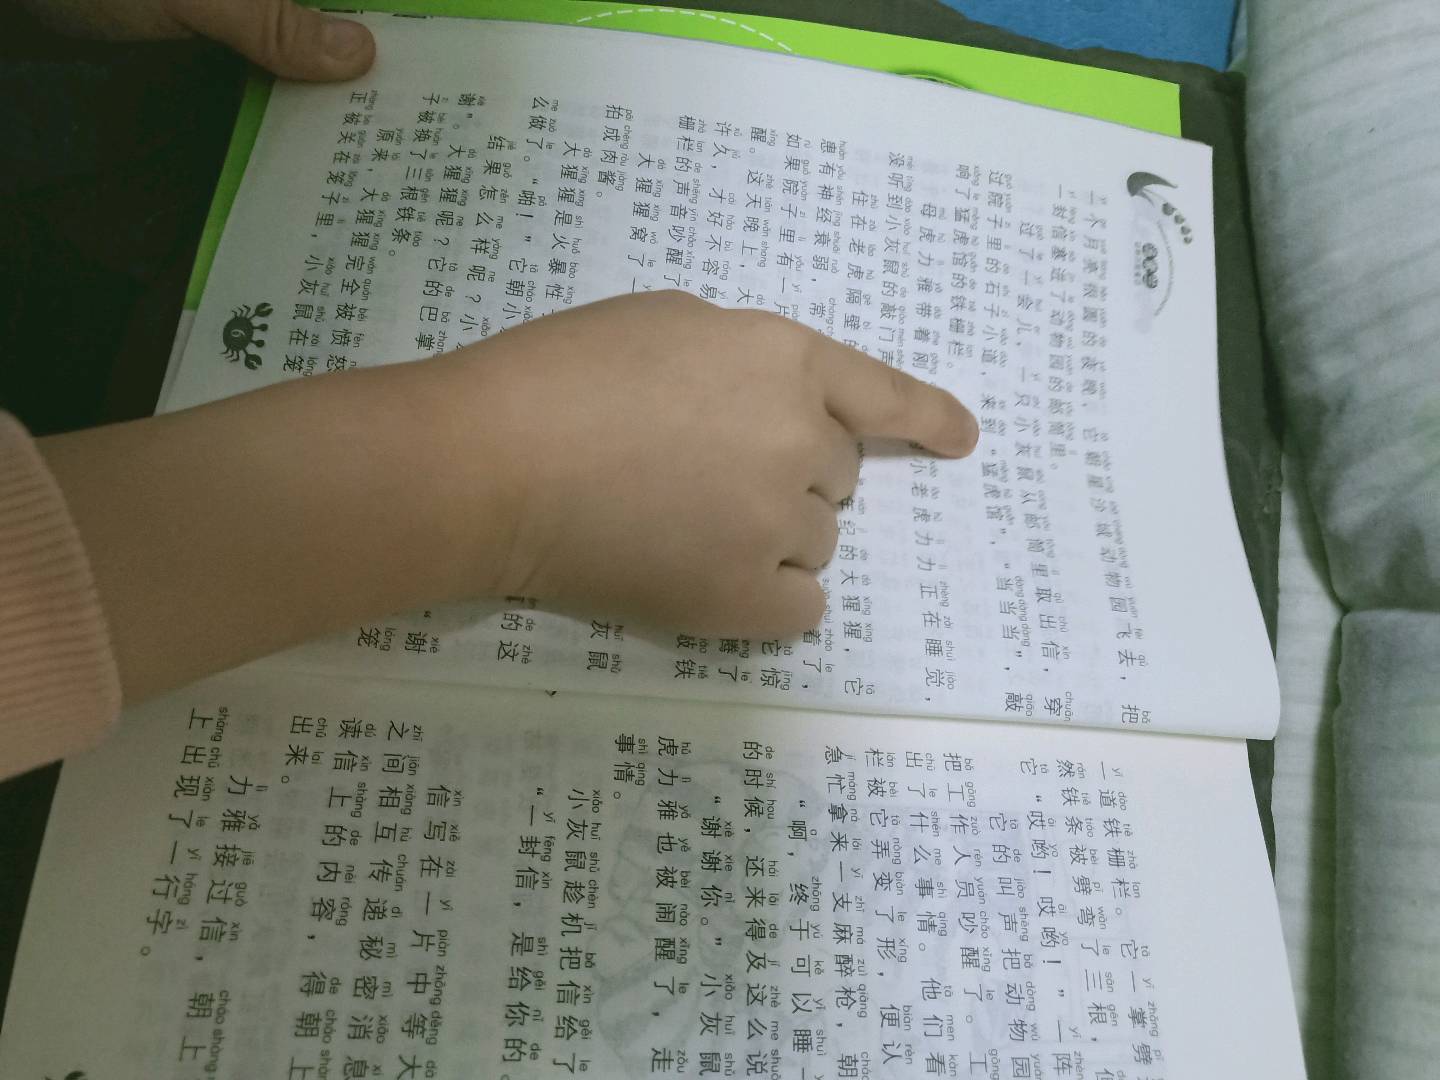 一个月亮很圆的夜晚，它朝星沙城动物园飞去，把
一封信塞进了动物园的邮筒里。
过了一会儿，一只小灰鼠从邮筒里取出信，穿
过院子里的石子小道，来到“猛虎馆”，“当当当”，敲
响了猛虎馆的铁栅栏。
母虎力雅带着刚
小老虎力力正在睡觉，
没听到小灰鼠的敲门声
住在老虎隔壁的
年纪的大猩猩，它
患有神经衰弱，常
着了，
如果院子里有一片
它惊
醒。这天晚上，大
了
许久，才好不容易
敲铁
栅栏的声音吵醒了
大猩猩窝了一
灰鼠
拍成肉酱。
大猩猩是火暴性
的这
么做了。“啪！”它朝小
结果怎么样呢？小
“谢
谢”。大猩猩呢？它的巴掌
子被换了三根铁条。
原来，大猩猩完全被愤怒
笼
正被关在笼子里，小灰鼠在笼
6
一道铁栅栏。它一掌劈
然铁条被劈弯了三根，但
它“哎哟！哎哟！”一阵
它的叫声把动物园
把工作人员吵醒了。工
出了什么事情。他们看
栏被它弄变了形，便认
急忙拿来一支麻醉枪，朝
“啊，终于可以睡一
的时候，还来得及这么说
“谢谢你。”小灰鼠
虎力雅也被闹醒了，走
事情。
小灰鼠趁机把信给了
“一封信，是给你的。
信写在一片中等大
之间相互传递秘密消息
读信上的内容，得朝上
出来。
力雅接过信，朝上
上出现了一行字。